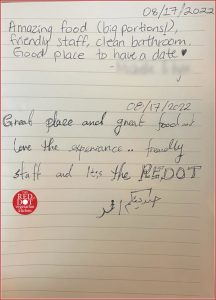 08/17/2022
Amazing food (big portions!),
friendly staff, clean bathroom.
Good place to have a date ♥
08/17/2022
Great place and great food
Love the experiance.. friendly
staff and It,s the REDOT
RED
DOT